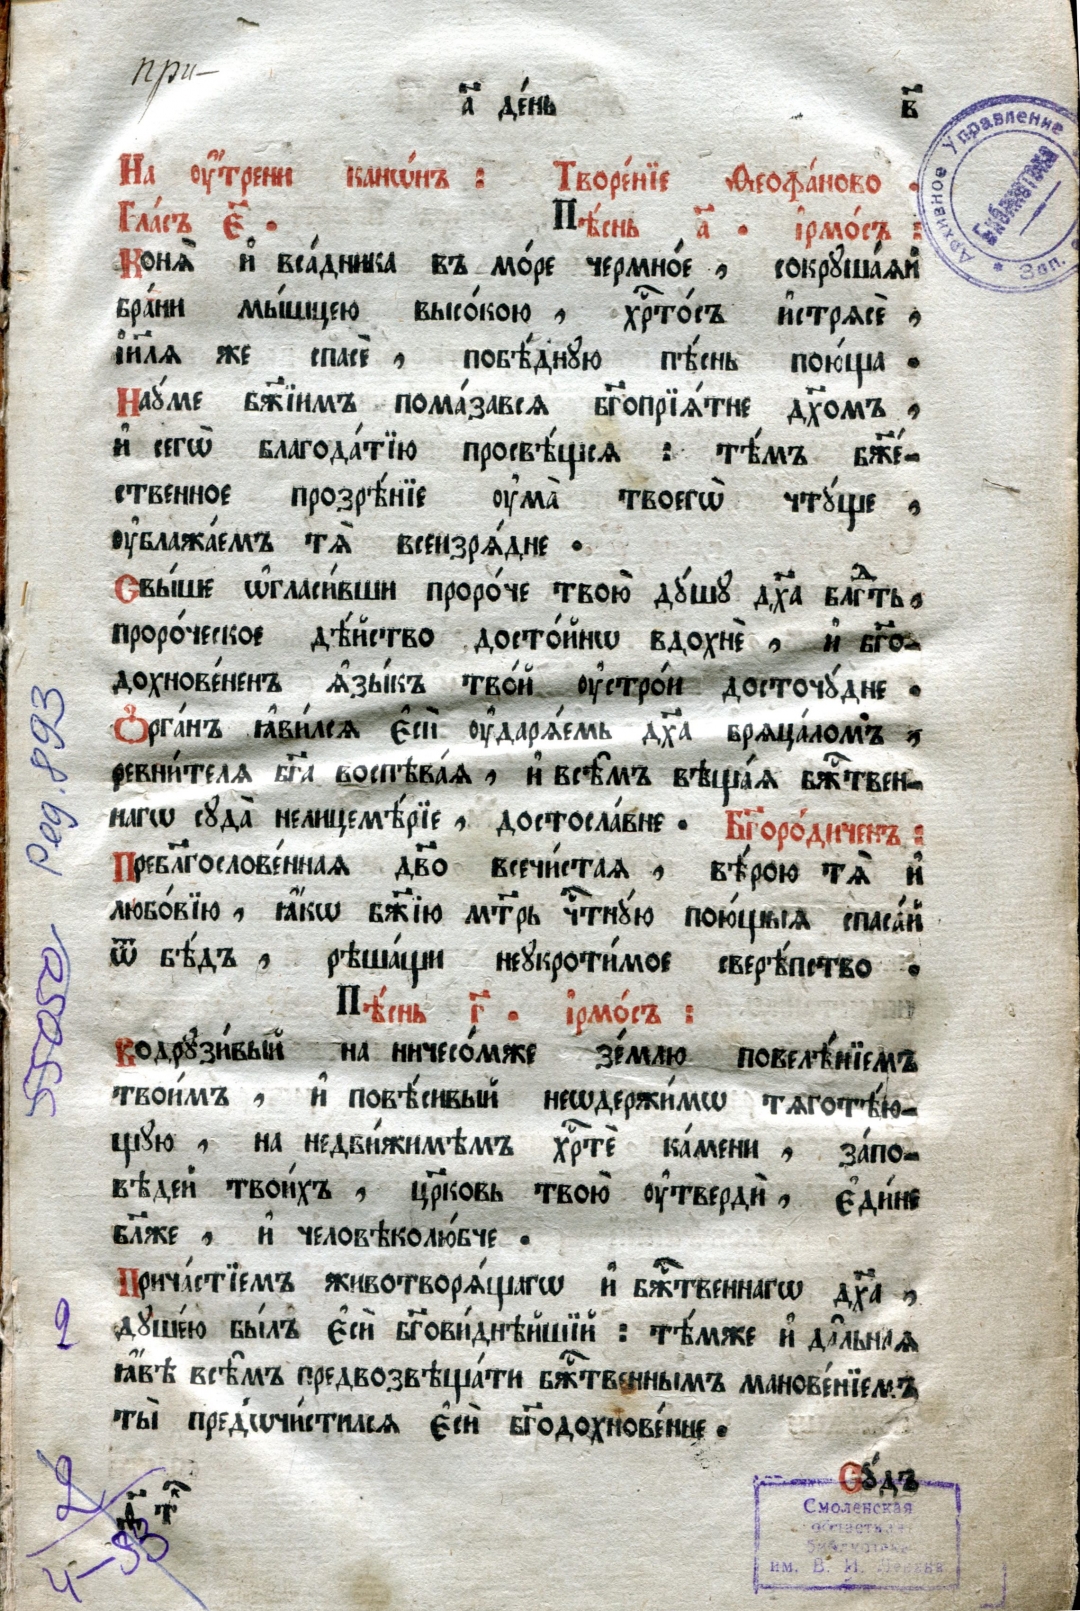 при-
а҃ де́нь
в҃
На оу҆́трени канѡ́нъ : Творе́нїе Ѳеофа́ново .
Гла́съ є҃ . Пѣ́снь а҃ . і҆рмо́съ :
Коня̀ и҆ вса́дника въ мо́ре чермно́е , сокруша́яй
бра́ни мы́шцею высо́кою , хрⷭ҇то́съ и҆стрясѐ ,
і҆и҃ля же спасѐ , побѣ́дную пѣ́снь пою́ща .
Нау́ме бж҃їимъ пома́зався бг҃опрїя́тне дх҃омъ ,
и҆ сегѡ̀ благода́тїю просвѣ́щся : тѣ́мъ бж҃е́-
ственное прозрѣ́нїе оу҆ма̀ твоегѡ̀ чту́ще ,
оу҆блажа́емъ тя̀ всеизря́дне .
Свы́ше ѡ҆гласи́вши проро́че твою̀ ду́шу дх҃а блгⷣть ,
проро́ческое дѣ́йство досто́йнѡ вдохнѐ , и҆ бг҃о-
дохнове́ненъ я҆зы́къ тво́й оу҆стро́и досточу́дне .
Ѻ҆рга́нъ ꙗ҆ви́лся є҆сѝ оу҆даря́емь дх҃а бряца́ломъ ,
ревни́теля бг҃а воспѣва́я , и҆ всѣ̑мъ вѣща́я бжⷭ҇твен-
нагѡ суда̀ нелицемѣ́рїе , достосла́вне . Бг҃оро́диченъ :
Пребл҃гослове́нная дв҃о всечи́стая , вѣ́рою тя̀ и҆
любо́вїю , ꙗ҆́кѡ бж҃їю мт҃рь чⷭ҇тну́ю пою́щыя спаса́й
ѿ бѣ́дъ , рѣша́щи неукроти́мое сверѣ́пство .
Пѣ́снь г҃ . і҆рмо́съ :
Водрузи́вый на ничесо́мже зе́млю повелѣ́нїемъ
твои́мъ , и҆ повѣ́сивый неѡдержи́мѡ тяготѣ́ю-
щую , на недви́жимѣмъ хрⷭ҇тѐ ка́мени , за́по-
вѣдей твои́хъ , цр҃ковь твою̀ оу҆твердѝ , є҆ди́не
бл҃же , и҆ человѣколю́бче .
Прича́стїемъ животворя́щагѡ и҆ бжⷭ҇твеннагѡ дх҃а ,
душе́ю бы́лъ є҆сѝ бг҃ови́днѣйшїй : тѣ́мже и҆ да́льная
ꙗ҆́вѣ всѣ̑мъ предвозвѣща́ти бжⷭ҇твеннымъ манове́нїемъ
ты̀ предѡчи́стился є҆сѝ бг҃одохнове́нне .
Су́дъ
Архивное Управление
Библиотека
Зап.
Смоленская
областная
библиотека
им. В. И. Ленина
Ред. 893
55050
2
2
4-93